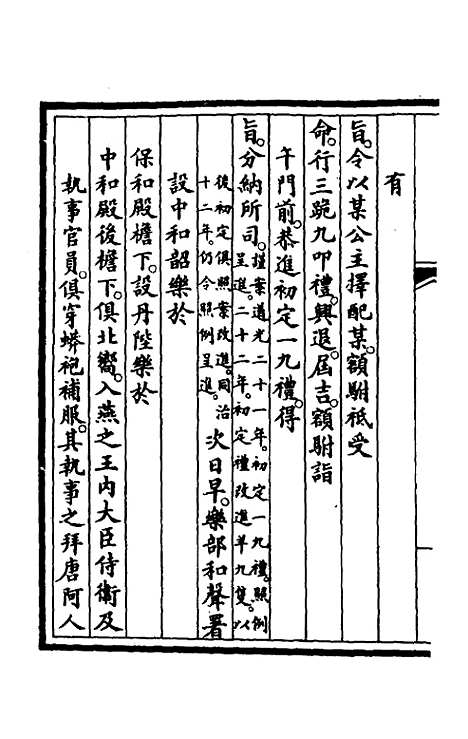 有
旨。令以某公主擇配某。額駙祗受
命。行三跪九叩禮。興退。屆吉。額駙詣
午門前。恭進初定一九禮。得
旨。分納所司。謹案道光二十一年。初定一九禮。照例
呈進。二十二年。初定禮改進羊九隻。以
後初定俱照案改進。同治
十二年。仍令照例呈進。次日早。樂部和聲署
設中和韶樂於
保和殿檐下。設丹陛樂於
中和殿後檐下。俱北嚮。入燕之王內大臣侍衞及
執事官員。俱穿蟒袍補服。其執事之拜唐阿人